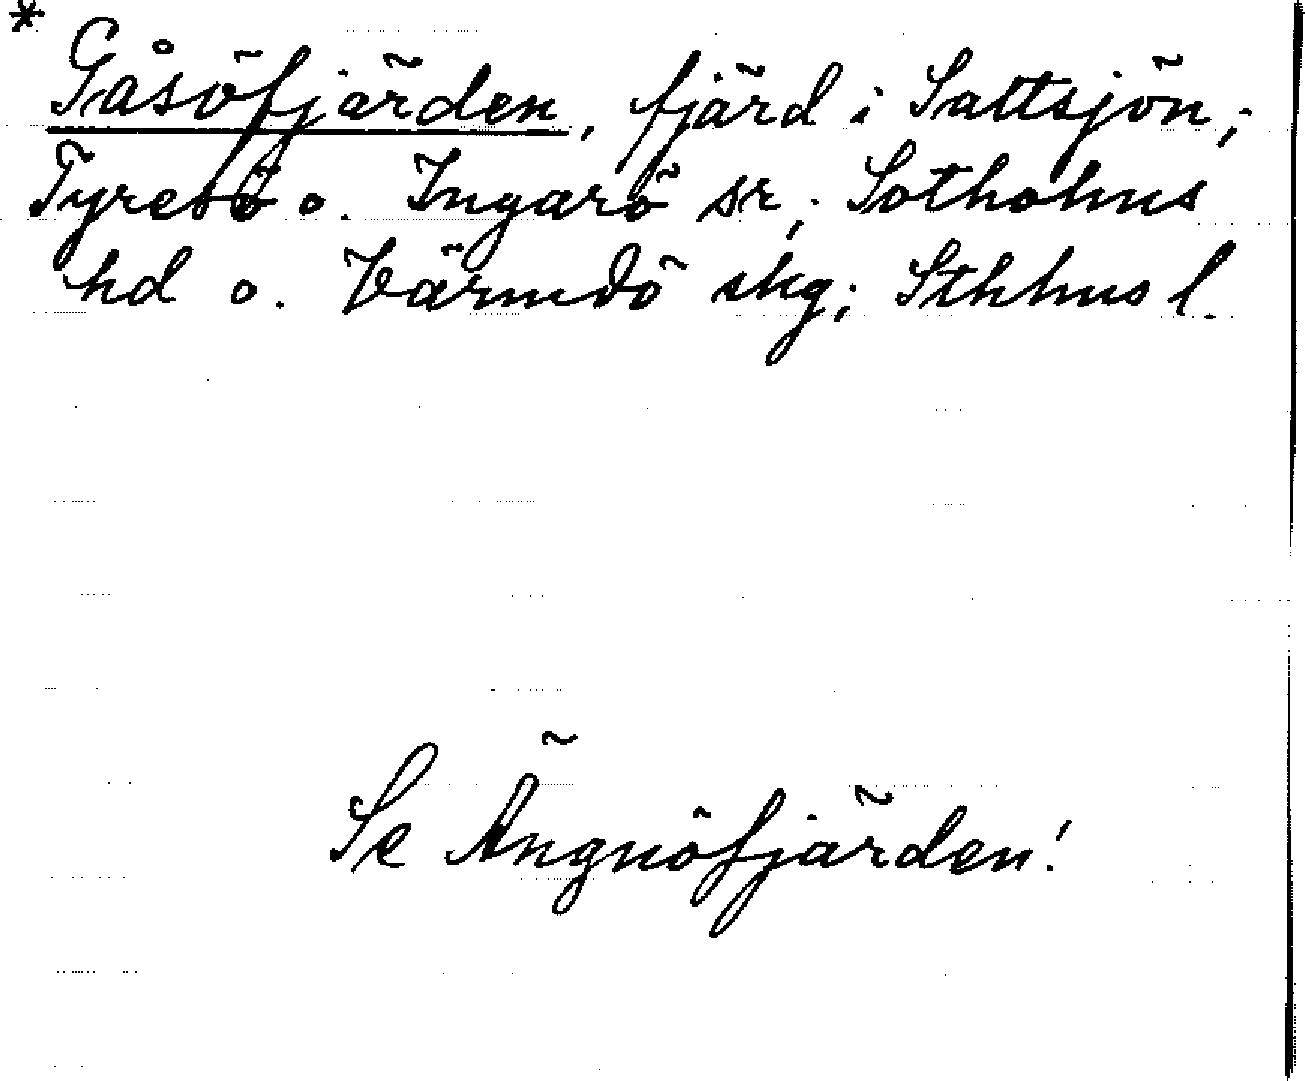 * Gåsöfjärden, fjärd i Saltsjön;
Tyresö o. Ingarö sr; Sotholms
hd o. Värmdö skg; Sthlms l.
Se Ängnöfjärden!